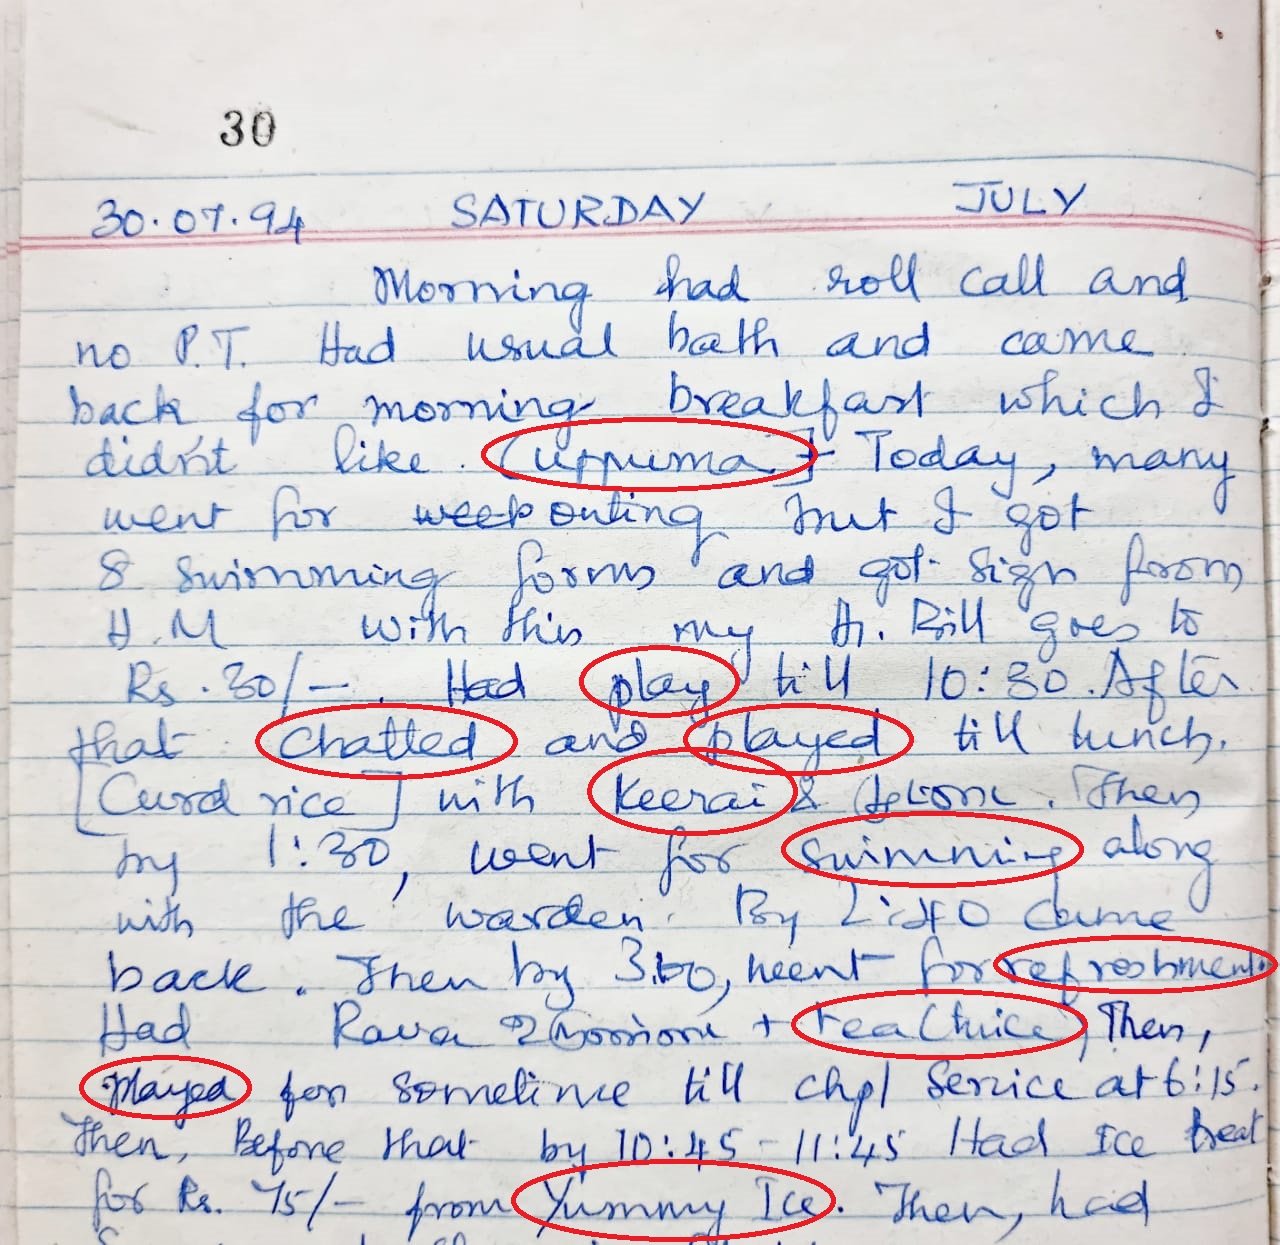 30
30.07.94 SATURDAY JULY
Morning had roll call and
no P.T. Had usual bath and came
back for morning breakfast which I
didn't like. (uppuma] Today, many
went for outing but I got
8 swimming forms and got sign from
H.M with this my H. Bill goes to
Rs. 30/-. Had play till 10:30. After
that chatted and played till lunch.
[Curd rice] with Keerai & . Then
by 1:30, went for swimming along
with the warden. By 2:40 came
back. Then by 3:00, went for refreshment.
Had Rava + tea (twice) Then,
played for sometime till chpl Service at 6:15.
Then, Before that by 10:45 - 11:45 Had Ice treat
for Rs. 75/- from Yummy Ice. Then, had